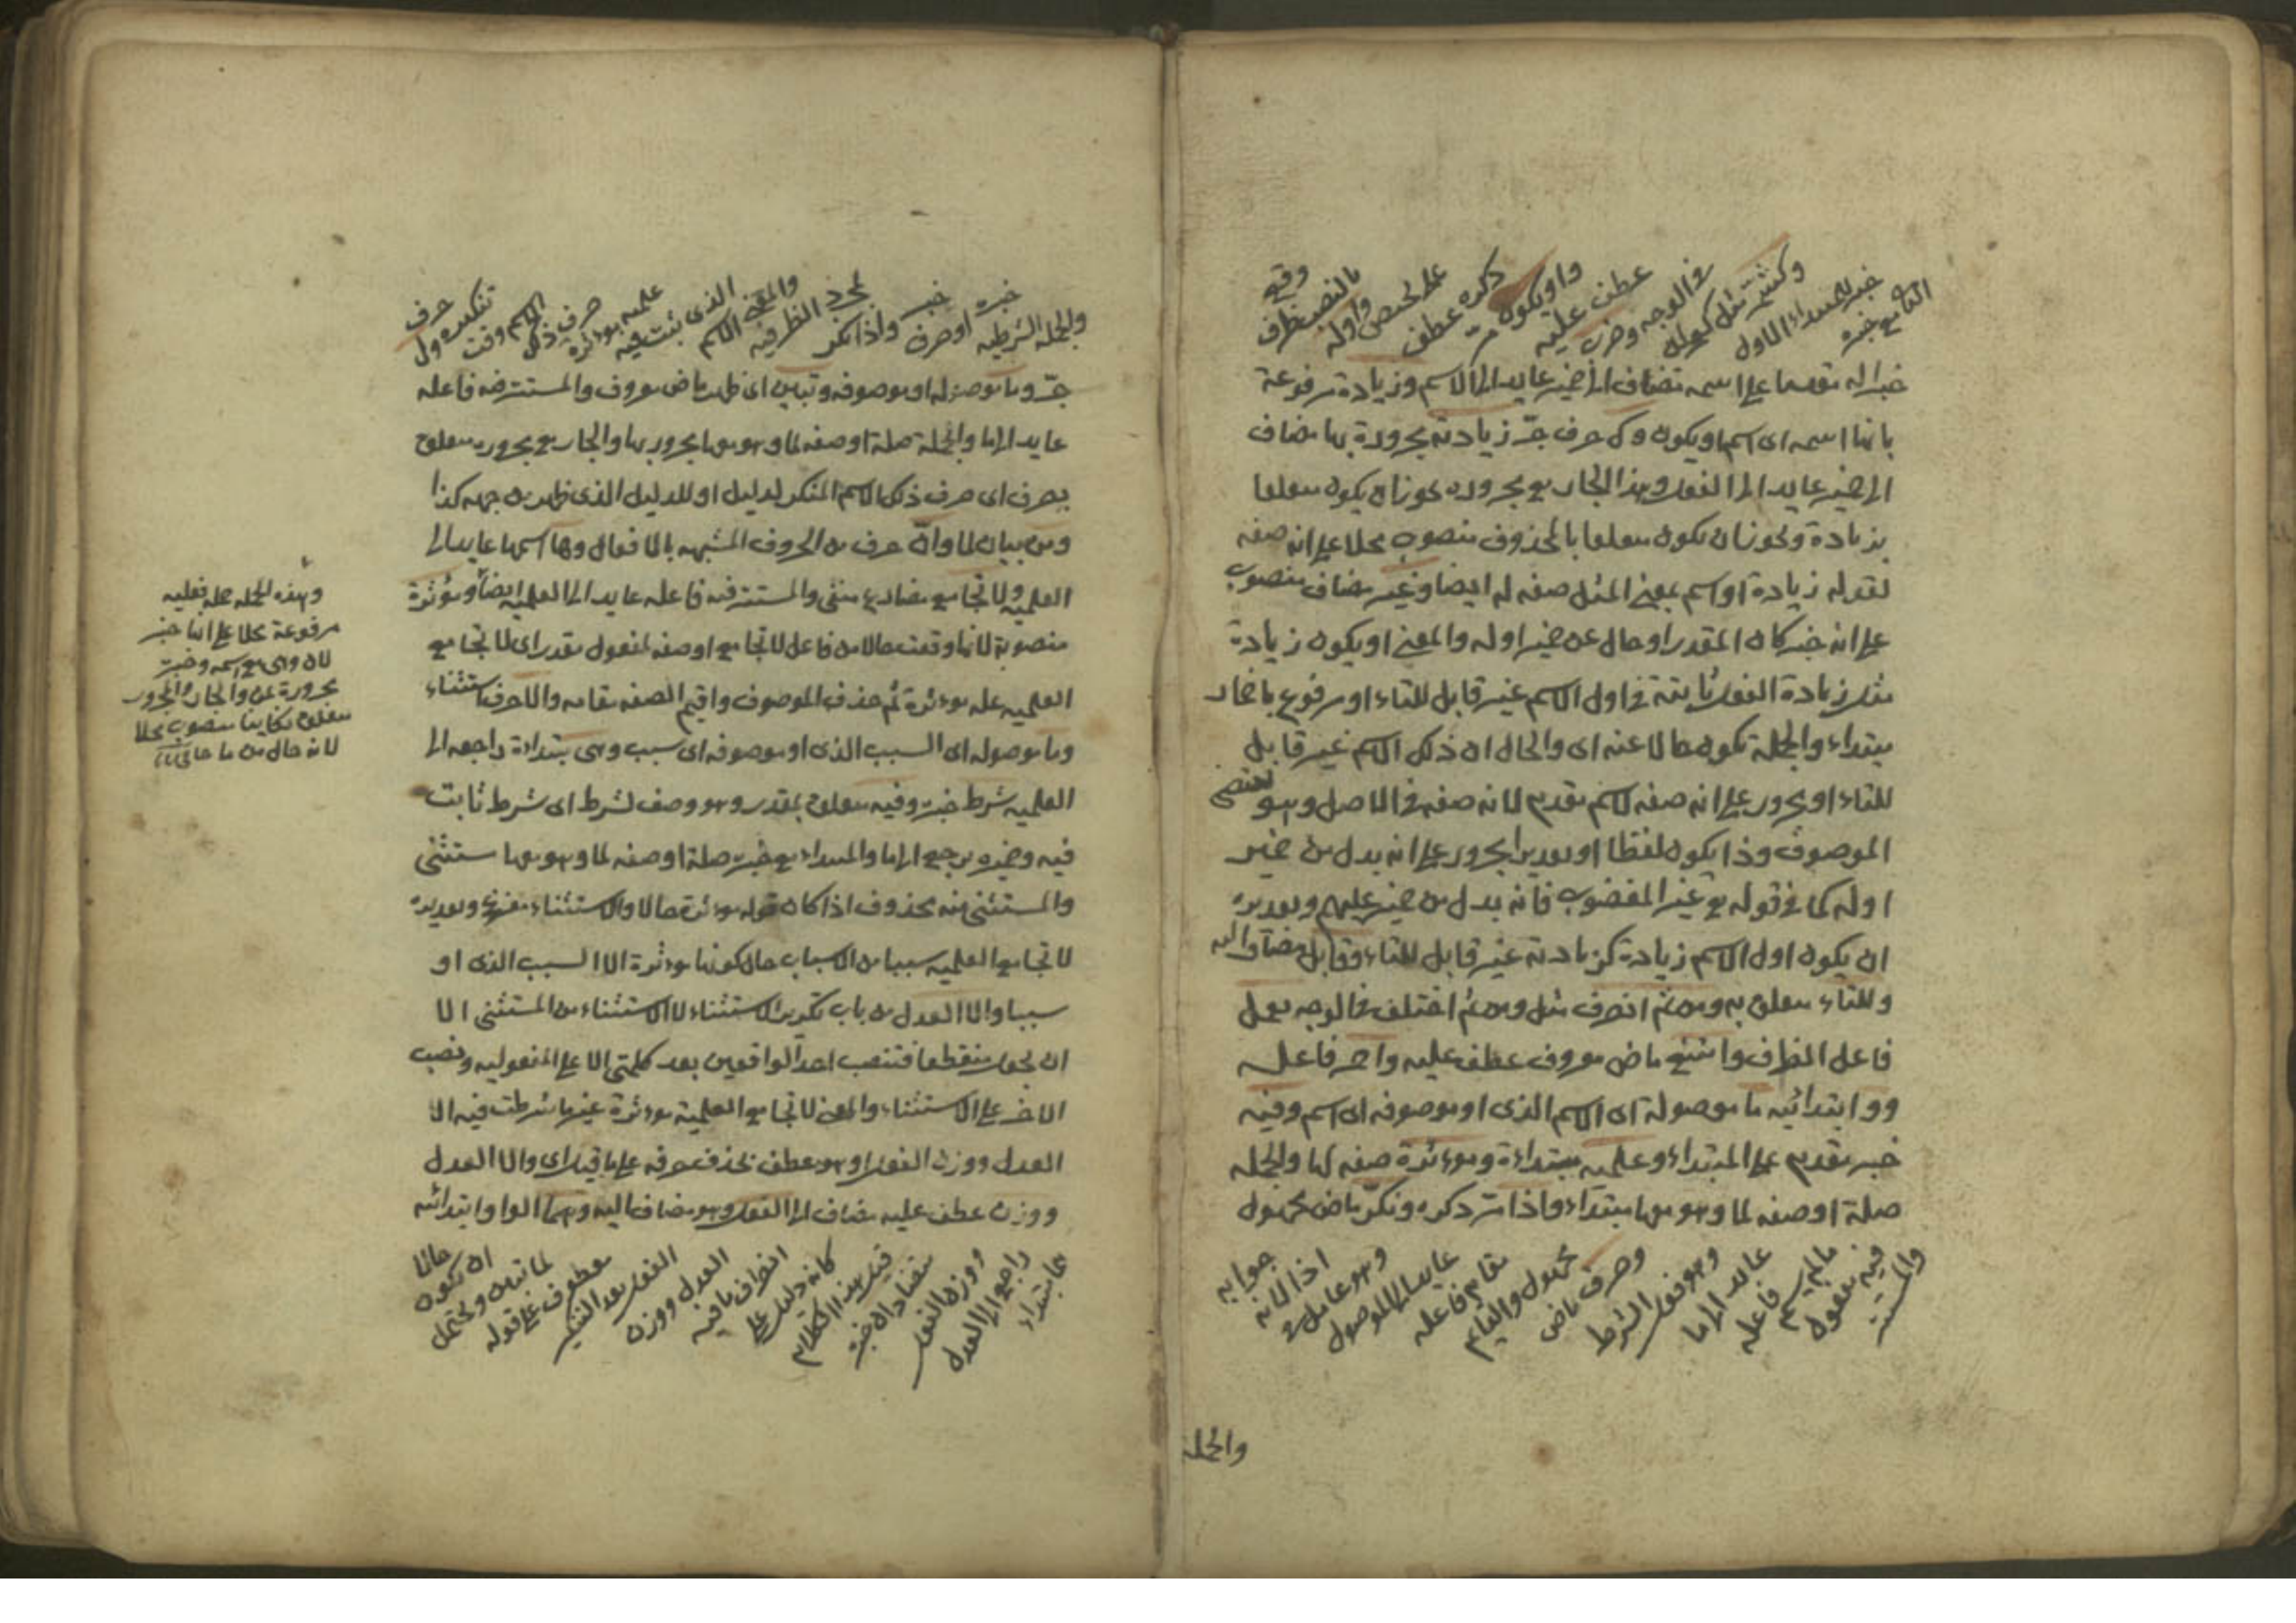 خبر للمبتداء الاول
وكشمر مثل كهوله
في الوجه وضرب
عطف عليه
واو يكون
ذكره عطف
على يختص
واوله
بالنصب ظرف
وقع
خبرا له مقدما على اسمه مضاف الى ضمير عايد الى الاسم وزيادة مرفوعة
بانها اسمه اى اسم او يكون وك حرف جرّ زيادته مجرورة بها مضاف
الى ضمير عايد الى الفعل وهذا الجار مع مجروره يجوز ان يكون متعلقا
بزيادة ويجوز ان يكون متعلقا بالمحذوف منصوب محلا على انه صفه
لقوله زيادة او اسم بمعنى المثل صفه له ايضا وغير مضاف منصوب
على انه خبر كان المقدر او حال عن ضمير اوله والمعنى او يكون زيادة
مثل زيادة الفعل ثابتة في اول الاسم غير قابل للتاء او مرفوع باضمار
مبتداء والجملة تكون حالا عنه اى والحال ان ذلك الاسم غير قابل
للتاء او مجرور على انه صفه لاسم مقدم لانه صفه في الاصل وهو يقتضى
الموصوف وذا يكون لفظا او تقديرا مجرور على انه بدل من ضمير
اوله كما في قوله تع غير المغضوب فانه بدل من ضمير عليهم وتقديره
ان يكون اول الاسم زيادة كزيادته غير قابل للتاء وقابل مضاف اليه
وللتاء متعلق به ومن ثم انصرف مثل ومن ثم اختلف في الوجه يعمل
فاعل الظرف وامتنع ماض معروف عطف عليه واحمر فاعله
وو ابتدائيه ما موصولة اى الاسم الذى او موصوفه اى اسم وفيه
خبر مقدم على المبتداء وعلميه مبتداءة ومؤثرة صفه لها والجمله
صلة او صفه لما وهو مهما مبتداء واذا مرّ ذكره ونكّر ماض مجهول
والمستتر
فيه مفعول
مالم يسم فاعله
عايد الى ما
وهو فعل الشرط
وصرف ماض
مجهول والقايم
مقام فاعله
عايد الى الموصول
وهو عامل في
اذا لانه
جوابه
والجمله
والجمله الشرطيه
خبره او صرف
خبر واذا نكر
لمجرد الظرفيه
والمعنى الاسم
الذى ثبت فيه
علميه مؤثرة
صرف ذلك
الاسم وقت
تنكيره ول
حرف
جرّ وما موصوله او موصوفه وتبين اى ظهر ماض معروف والمستتر فيه فاعله
عايد الى ما والجملة صلة او صفه لما وهو مهما مجرور بها والجار مع مجروره متعلق
بصرف اى صرف ذلك الاسم المنكر لدليل او للدليل الذى ظهر من جهه كذا
ومن بيان لما وانّ حرف من الحروف المشبهه بالافعال وها اسمها عايد الى
العلميه ولا تجامع مضارع منفى والمستتر فيه فاعله عايد الى العلميه ايضا ومؤثرة
منصوبة لانها وقعت حالا من فاعل لا تجامع او صفه لمفعول مقدر اى لا تجامع
العلميه علة مؤثرة ثم حذف الموصوف واقيم الصفه مقامه والا حرف استثناء
وما موصوله اى السبب الذى او موصوفه اى سبب وهى مبتداءة راجعه الى
العلميه شرط خبره وفيه متعلق بمقدر وهو وصف لشرط اى شرط ثابت
فيه وضميره يرجع الى ما والمبتداء مع خبره صلة او صفه لما وهو مهما مستثنى
والمستثنى منه محذوف اذا كان قوله مؤثرة حالا والاستثناء مفرغ وتقديره
لا تجامع العلميه سببا من الاسباب حال كونها مؤثرة الا السبب الذى او
سببا والا العدل من باب تكرير الاستثناء لا الاستثناء من المستثنى الا
ان يجعل منقطعا فتنصب احد الواقعين بعد كلمتى الا على المفعوليه ونصب
الاخر على الاستثناء والمعنى لا تجامع العلمية مؤثرة غير ما شرطت فيه الا
العدل ووزن الفعل او هو عطف بحذف حرفه على ما قبله اى والا العدل
ووزن عطف عليه مضاف الى الفعل وهو مضاف اليه وهما الواو ابتدائيه
هما مبتداء
راجع الى العدل
ووزن الفعل
متضادان خبره
قيل هذا الكلام
كانه دليل على
انصراف ما فيه
العدل ووزن
الفعل بعد التنكير
معطوف على قوله
لما تبين ويحتمل
ان يكون
حالا
وهذه الجمله جمله فعليه
مرفوعة محلا على انها خبر
لان وهى مع اسمه وخبره
مجرورة بمن والجار والمجرور
متعلق بكاينا منصوب محلا
لانه حال من ما